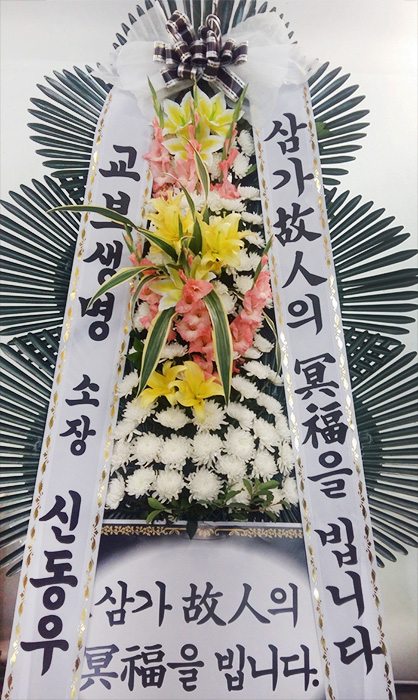 삼가 故人의 冥福을 빕니다
교보생명 소장 신동우
삼가 故人의
冥福을 빕니다.